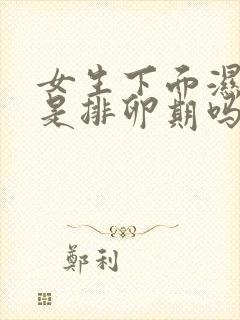 女生下面濕
是排卵期吗
鄭利